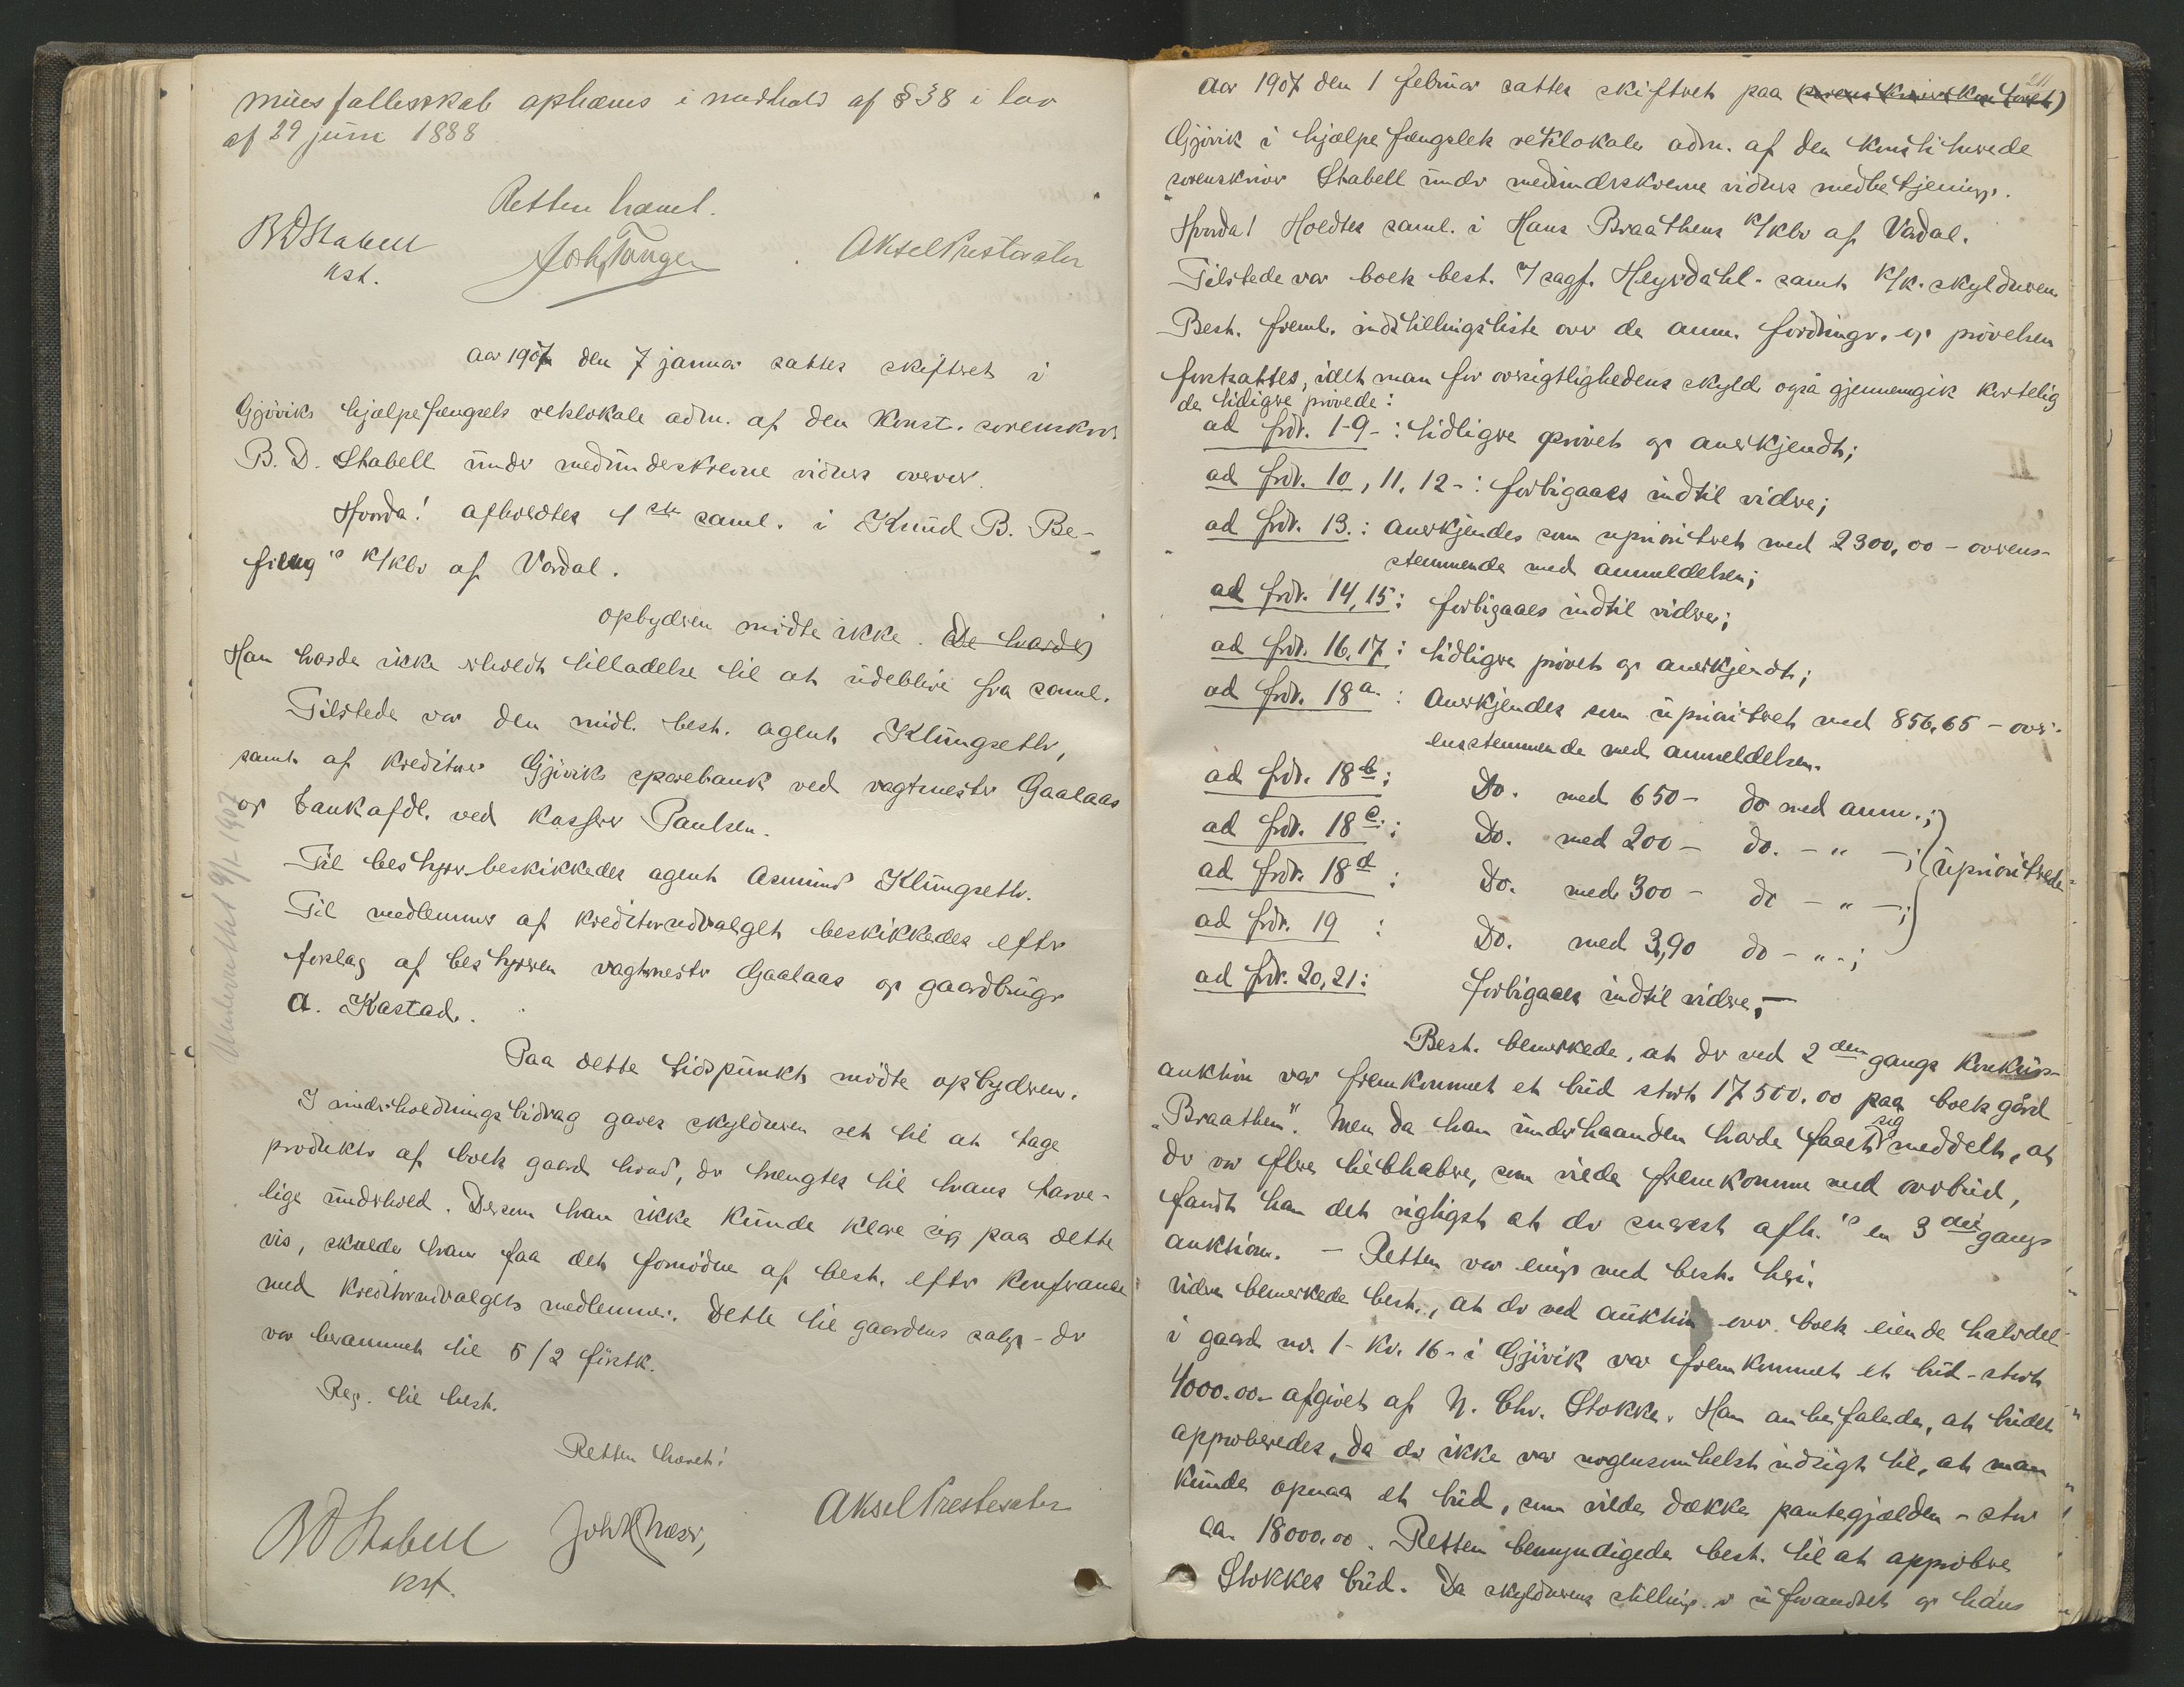 muesfællesskab ophæves i medhold af § 38 i lov
af 29 juni 1888
Retten hævet.
BDStabell
kst.
Joh Tanger
Aksel Presterater
Aar 1907 den 7 januar sattes skifteret i
Gjøviks hjælpefængsels retslokale adm. af den konst. sorenskriv.
B. D. Stabell under medundeskrevne vidners overver.
Hvorda! afholdtes 1ste saml. i Knud B. Be-
fring's k/kbo af Vardal.
opbyderen mødte ikke. De havde
Han havde ikke erholdt tilladelse til at udeblive fra saml.
Tilstede var den midl. best. agent Klungseth,
samt af kreditorer Gjøviks sparebank ved vagtmester Gaalaas
og bankafdl. ved kasserer Paulsen.
Underrettet 9/1-1907
Til bestyrer beskikkedes agent Asmund Klungseth.
Til medlemmer af kreditorudvalget beskikkedes efter
forslag af bestyreren vagtmester Gaalaas og gaardbruger
A. Kastad.
Paa dette tidspunkt mødte opbyderen.
I underholdningsbidrag gaves skyldneren ret til at tage
produkter af boets gaard hvad, der trengtes til hans tarve-
lige underhold. Dersom han ikke kunde klare sig paa dette
vis, skulde han faa det fornødne af best. efter konferance
med kreditorudvalgets medlemmer. Dette til gaardens salg - der
var berammet til 5/2 førstk.
Reg. til best.
Retten hævet!
BDStabell
kst.
Aksel Presterater
Aar 1907 den 1 februar sattes skifteret paa (sorenskriverkontoret)
Gjøvik i hjælpefængslets retslokale adm. af den konstituerede
sorenskriver Stabell under medunderskrevne vidners medbetjening.
Hvorda! Holdtes saml. i Hans Braathens k/kbo af Vardal.
Tilstede var boets best. o/sagf. Heyerdahl - samt k/k. skyldneren.
Best. freml. indstillingsliste over de anm. fordringer. og prøvelsen
fortsattes, idet man for oversigtlighedens skyld også gjennemgik kortelig
de tidligere prøvede:
ad fdr. 1-9-: tidligere prøvet og anerkjendt;
ad fdr. 10, 11, 12-: forbigaaes indtil videre;
ad fdr. 13.: anerkjendes som uprioritert med 2300,00 - overens-
stemmende med anmeldelsen;
ad fdr. 14, 15: forbigaaes indtil videre;
ad fdr. 16, 17: tidligere prøvet og anerkjendt;
ad fdr. 18a.: Anerkjendes som uprioritert med 856,65 - over-
ensstemmende med anmeldelsen.
ad fdr. 18b: Do. med 650- do med anm.;
ad fdr. 18c.: Do. med 200- do. - " -;
ad fdr. 18d: Do. med 300- do - " -;
uprioriterte
ad fdr. 19: Do. med 3,90 do - " -;
ad fdr. 20, 21: forbigaaes indtil videre,-
Best. bemerkede, at der ved 2den gangs konkurs-
auktion var fremkommet et bud stort 17500.00 paa boets gård
"Braathen". Men da han underhaanden havde faaet sig meddelt, at
der var flere liebhabere, som vilde fremkomme med overbud,
fandt han det rigtigst at der snarest afh. en 3die gangs
auktion. - Retten var enig med best. heri.
videre bemerkede best., at der ved auktion over boets eiende halvdel
i gaard no. 1 - kv. 16 - i Gjøvik var fremkommet et bud - stort
4000.00 - afgivet af N. Chr. Stokke. Han anbefalede, at budet
approberedes, da der ikke var nogensomhelst udsigt til, at man
kunde opnaa et bud, som vilde dække pantegjælden - stor
ca. 18000.00. Retten bemyndigede best. til at approbere
Stokkes bud. Da skyldnerens stilling er uforandret og hans